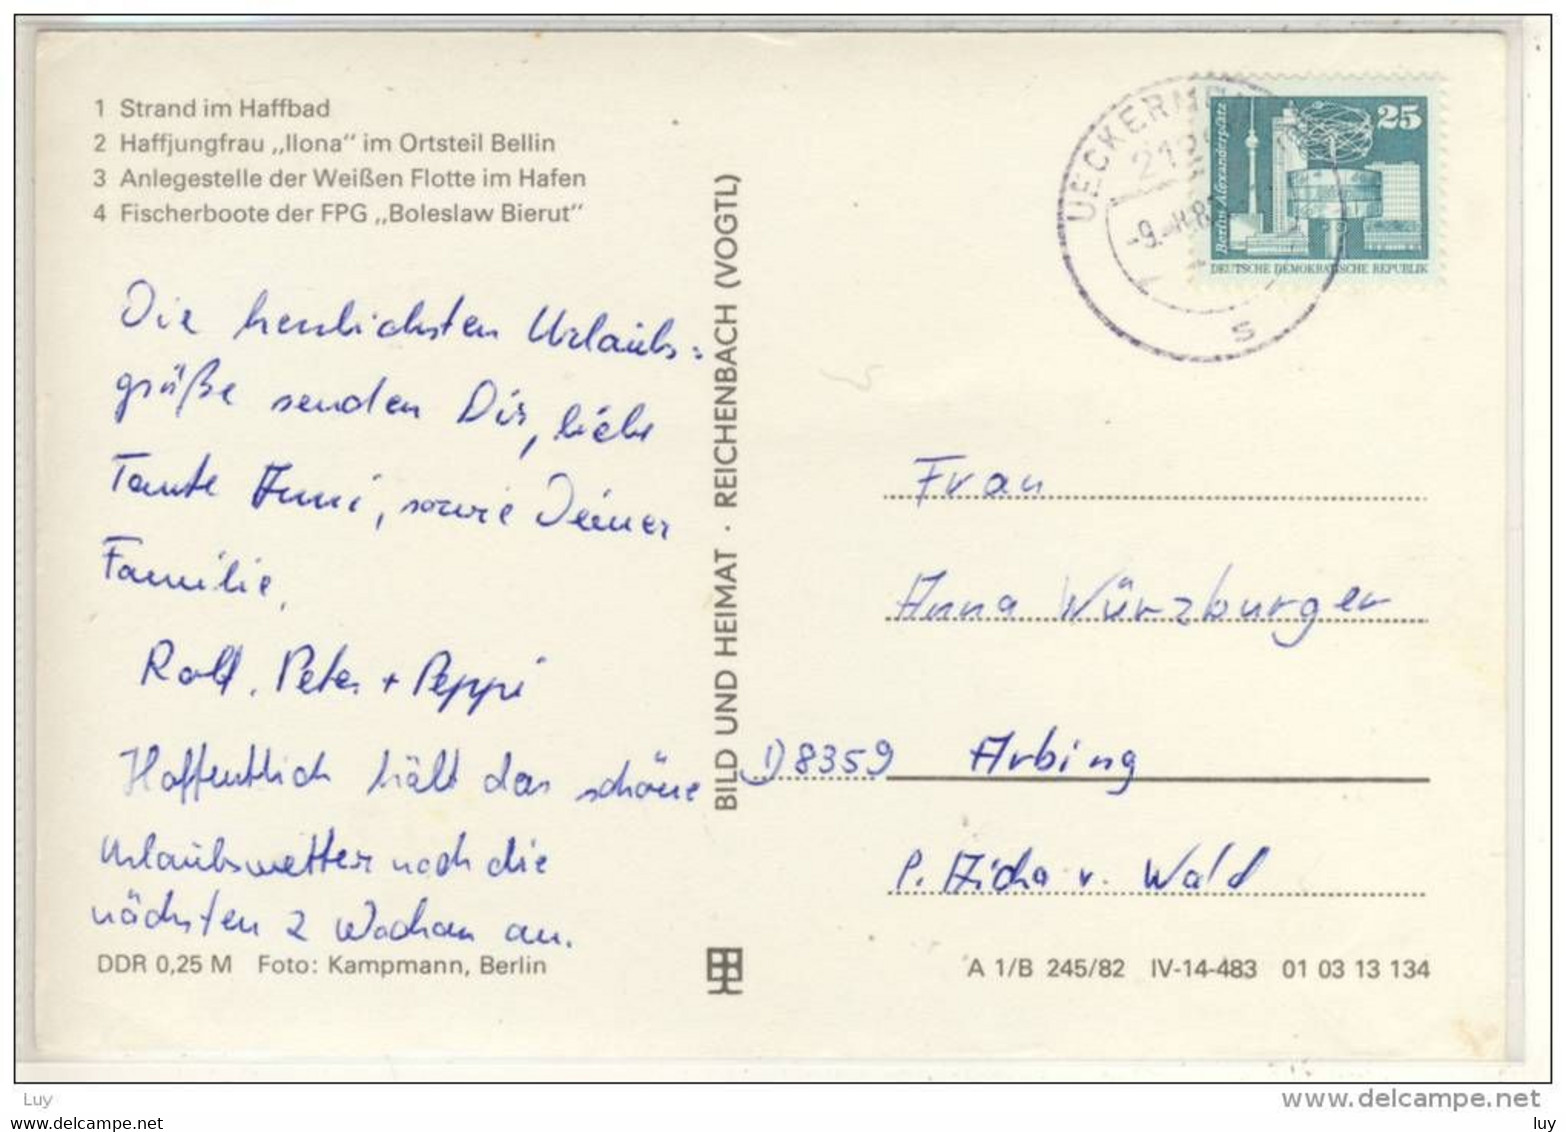 1 Strand im Haffbad
2 Haffjungfrau „Ilona“ im Ortsteil Bellin
3 Anlegestelle der Weißen Flotte im Hafen
4 Fischerboote der FPG „Boleslaw Bierut“
Die herzlichsten Urlaubs=
grüße senden Dir, liebe
Tante Anni, sowie Deiner
Familie,
Rolf, Peter + Peppi
Hoffentlich hält das schöne
Urlaubswetter noch die
nächsten 2 Wochen an.
DDR 0,25 M Foto: Kampmann, Berlin
BILD UND HEIMAT · REICHENBACH (VOGTL)
UECKERM
212
-9.-
S
25
Berlin, Alexanderplatz
DEUTSCHE DEMOKRATISCHE REPUBLIK
Frau
Anna Würzburger
D8359 Arbing
P. Aicha v. Wald
A 1/B 245/82 IV-14-483 01 03 13 134
Luy
www.delcampe.net
luy
luy
luy